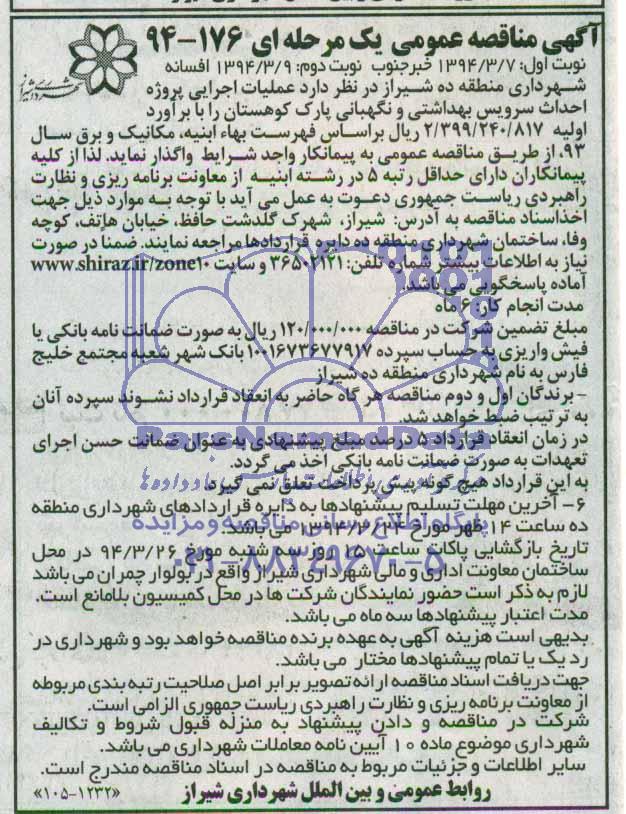 آگهی مناقصه عمومی یک مرحله ای ۱۷۶-۹۴
نوبت اول: ۱۳۹۴/۳/۷ خبرجنوب نوبت دوم: ۱۳۹۴/۳/۹ افسانه
شهرداری شیراز
شهرداری منطقه ده شیراز در نظر دارد عملیات اجرایی پروژه
احداث سرویس بهداشتی و نگهبانی پارک کوهستان را با برآورد
اولیه ۲/۳۹۹/۲۴۰/۸۱۷ ریال براساس فهرست بهاء ابنیه، مکانیک و برق سال
۹۳، از طریق مناقصه عمومی به پیمانکار واجد شرایط واگذار نماید. لذا از کلیه
پیمانکاران دارای حداقل رتبه ۵ در رشته ابنیه از معاونت برنامه ریزی و نظارت
راهبردی ریاست جمهوری دعوت به عمل می آید با توجه به موارد ذیل جهت
اخذ اسناد مناقصه به آدرس: شیراز، شهرک گلدشت حافظ، خیابان هاتف، کوچه
وفا، ساختمان شهرداری منطقه ده دایره قراردادها مراجعه نمایند. ضمنا در صورت
نیاز به اطلاعات بیشتر شماره تلفن: ۳۶۵۰۲۱۲۱ و سایت www.shiraz.ir/zone۱۰
آماده پاسخگویی می باشد.
مدت انجام کار: ۶ ماه
مبلغ تضمین شرکت در مناقصه ۱۲۰/۰۰۰/۰۰۰ ریال به صورت ضمانت نامه بانکی یا
فیش واریزی به حساب سپرده ۱۰۰۱۶۷۳۶۷۷۹۱۷ بانک شهر شعبه مجتمع خلیج
فارس به نام شهرداری منطقه ده شیراز
- برندگان اول و دوم مناقصه هر گاه حاضر به انعقاد قرارداد نشوند سپرده آنان
به ترتیب ضبط خواهد شد.
در زمان انعقاد قرارداد ۵ درصد مبلغ پیشنهادی به عنوان ضمانت حسن اجرای
تعهدات به صورت ضمانت نامه بانکی اخذ می گردد.
به این قرارداد هیچ گونه پیش پرداخت تعلق نمی گیرد.
۶- آخرین مهلت تسلیم پیشنهادها به دایره قراردادهای شهرداری منطقه
ده ساعت ۱۴ ظهر مورخ می باشد.
تاریخ بازگشایی پاکات ساعت ۱۵ روز سه شنبه مورخ ۹۴/۳/۲۶ در محل
ساختمان معاونت اداری و مالی شهرداری شیراز واقع در بولوار چمران می باشد
لازم به ذکر است حضور نمایندگان شرکت ها در محل کمیسیون بلامانع است.
مدت اعتبار پیشنهادها سه ماه می باشد.
بدیهی است هزینه آگهی به عهده برنده مناقصه خواهد بود و شهرداری در
رد یک یا تمام پیشنهادها مختار می باشد.
جهت دریافت اسناد مناقصه ارائه تصویر برابر اصل صلاحیت رتبه بندی مربوطه
از معاونت برنامه ریزی و نظارت راهبردی ریاست جمهوری الزامی است.
شرکت در مناقصه و دادن پیشنهاد به منزله قبول شروط و تکالیف
شهرداری موضوع ماده ۱۰ آیین نامه معاملات شهرداری می باشد.
سایر اطلاعات و جزئیات مربوط به مناقصه در اسناد مناقصه مندرج است.
روابط عمومی و بین الملل شهرداری شیراز
«۱۰۵-۱۲۳۲»
ParsNamadData
پایگاه اطلاع رسانی مناقصه و مزایده
۰۲۱-۸۸۳۴۹۶۷۰-۵